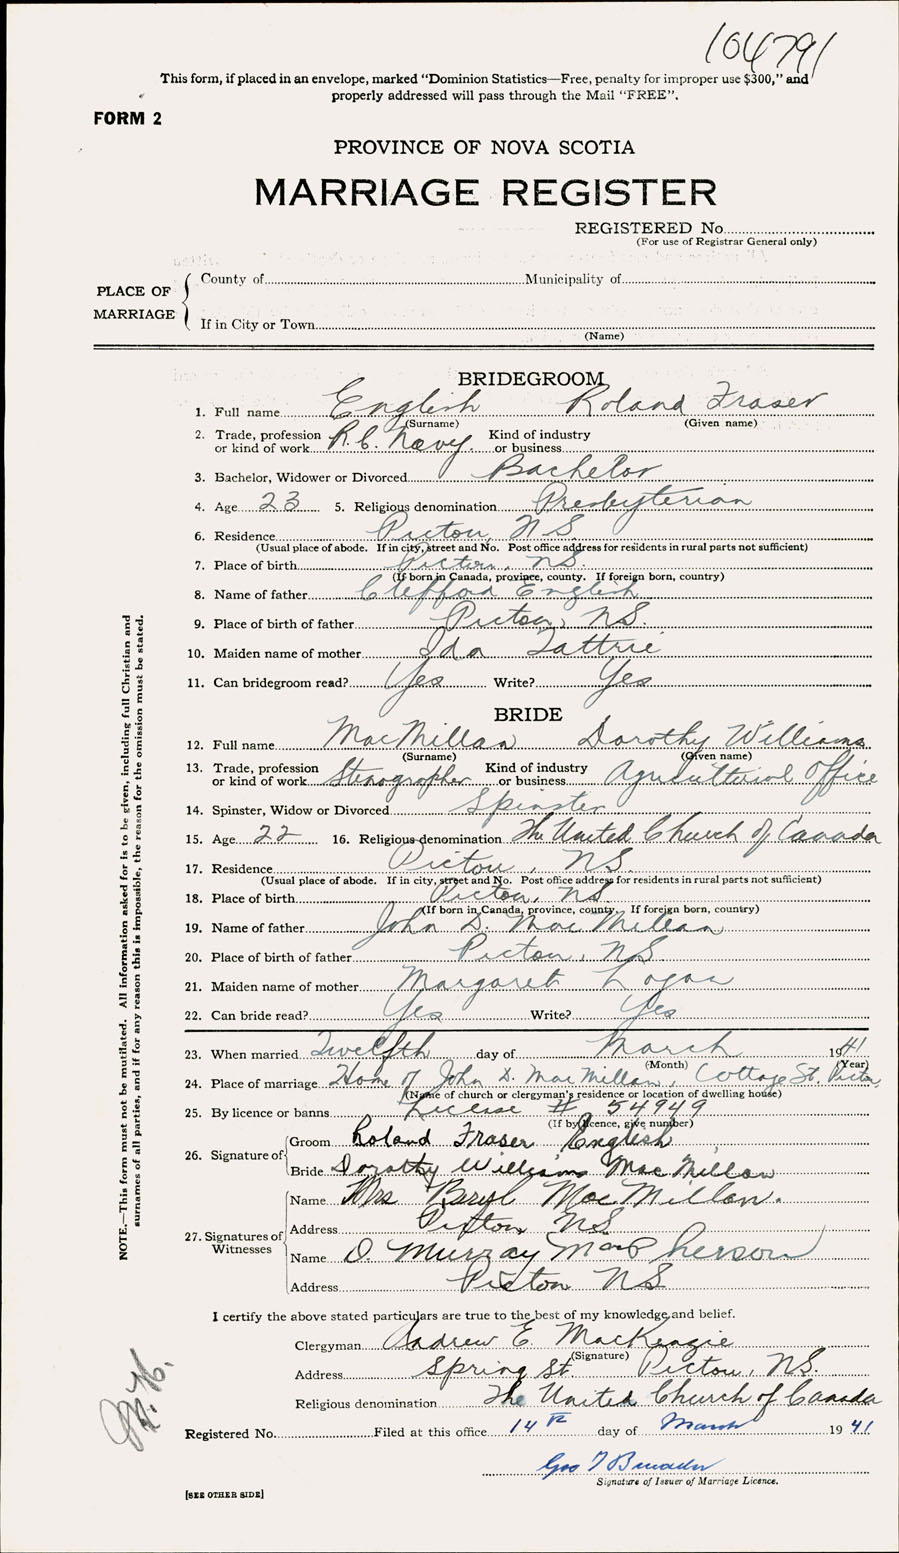 104791
This form, if placed in an envelope, marked "Dominion Statistics—Free, penalty for improper use $300," and
properly addressed will pass through the Mail "FREE".
FORM 2
PROVINCE OF NOVA SCOTIA
MARRIAGE REGISTER
REGISTERED No.
(For use of Registrar General only)
PLACE OF MARRIAGE
County of Municipality of
If in City or Town
(Name)
BRIDEGROOM
1. Full name English Roland Fraser
(Surname) (Given name)
2. Trade, profession or kind of work R.C. Navy. Kind of industry or business
3. Bachelor, Widower or Divorced Bachelor
4. Age 23 5. Religious denomination Presbyterian
6. Residence Pictou, NS
(Usual place of abode. If in city, street and No. Post office address for residents in rural parts not sufficient)
7. Place of birth Pictou, NS.
(If born in Canada, province, county. If foreign born, country)
8. Name of father Clifford English
9. Place of birth of father Pictou, NS.
10. Maiden name of mother Ida Tattrie
11. Can bridegroom read? Yes Write? Yes
BRIDE
12. Full name MacMillan Dorothy Williams
(Surname) (Given name)
13. Trade, profession or kind of work Stenographer Kind of industry or business Agricultural Office
14. Spinster, Widow or Divorced Spinster
15. Age 22 16. Religious denomination The United Church of Canada
17. Residence Pictou, NS.
(Usual place of abode. If in city, street and No. Post office address for residents in rural parts not sufficient)
18. Place of birth Pictou, NS
(If born in Canada, province, county. If foreign born, country)
19. Name of father John D. MacMillan
20. Place of birth of father Pictou, NS.
21. Maiden name of mother Margaret Logan
22. Can bride read? Yes Write? Yes
23. When married Twelfth day of March 1941
(Month) (Year)
24. Place of marriage Home of John D. MacMillan, Cottage St. Pictou
(Name of church or clergyman's residence or location of dwelling house)
25. By licence or banns License # 54949
(If by licence, give number)
26. Signature of Groom Roland Fraser English
Bride Dorothy Williams MacMillan
27. Signatures of Witnesses
Name Mrs Beryl MacMillan.
Address Pictou NS
Name D. Murray MacPherson
Address Pictou NS
I certify the above stated particulars are true to the best of my knowledge and belief.
Clergyman Andrew E. MacKenzie
(Signature)
Address Spring St. Pictou, NS.
Religious denomination The United Church of Canada
Registered No. Filed at this office 14th day of March 1941
Geo
Signature of Issuer of Marriage Licence.
[SEE OTHER SIDE]
NOTE.—This form must not be mutilated. All information asked for is to be given, including full Christian and
surnames of all parties, and if for any reason this is impossible, the reason for the omission must be stated.